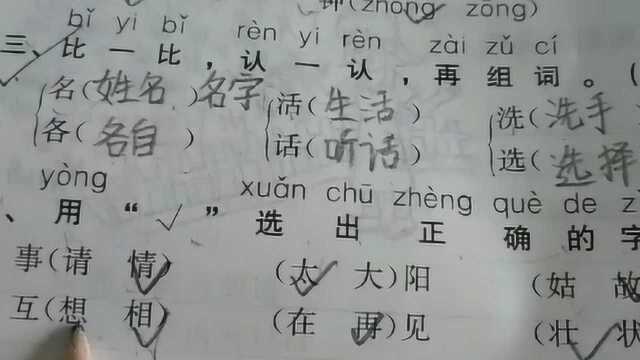 钟(zhōng zōng)
bǐ yi bǐ rèn yi rèn zài zǔ cí
三、比一比,认一认,再组词。(
名(姓名)名字 活(生活) 洗(洗手
各(名自) 话(听话) 选(选择
yòng xuǎn chū zhèng què de z
、用“√”选出正确的字
事(请 情) (太 大)阳 (姑 故
互(想 相) (在 再)见 (壮 状